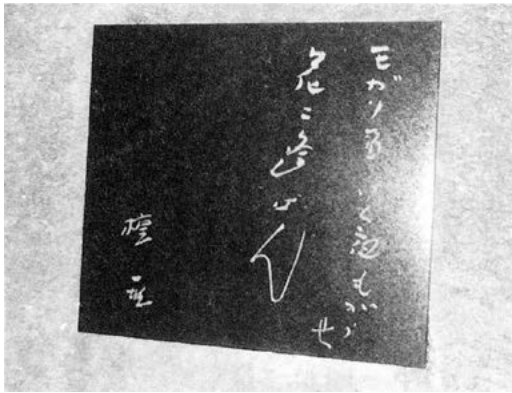 モガリ笛いく夜もがらせ
花ニ逢はん
檀一雄